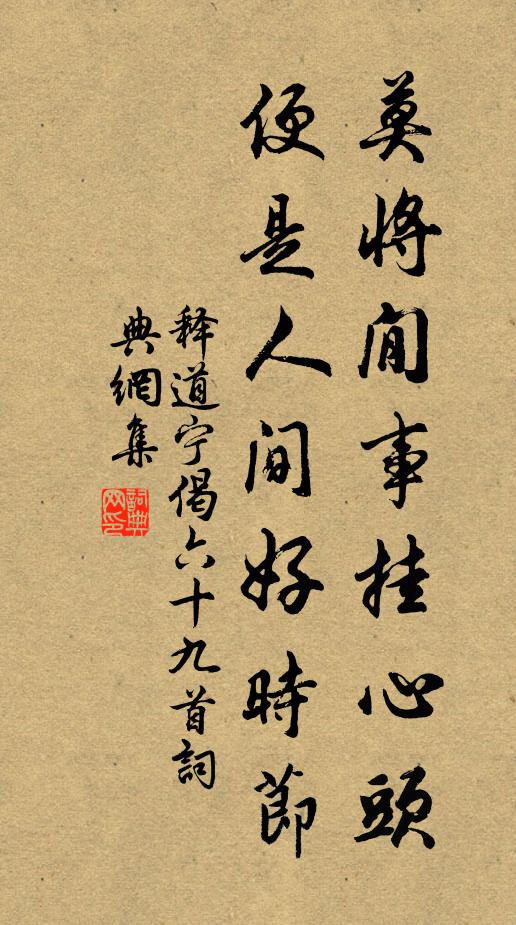 莫將閒事挂心頭
便是人間好時節
释道宁偈六十九首詞
典網集
詞典网印